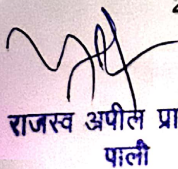 राजस्व अपील प्रा
पाली